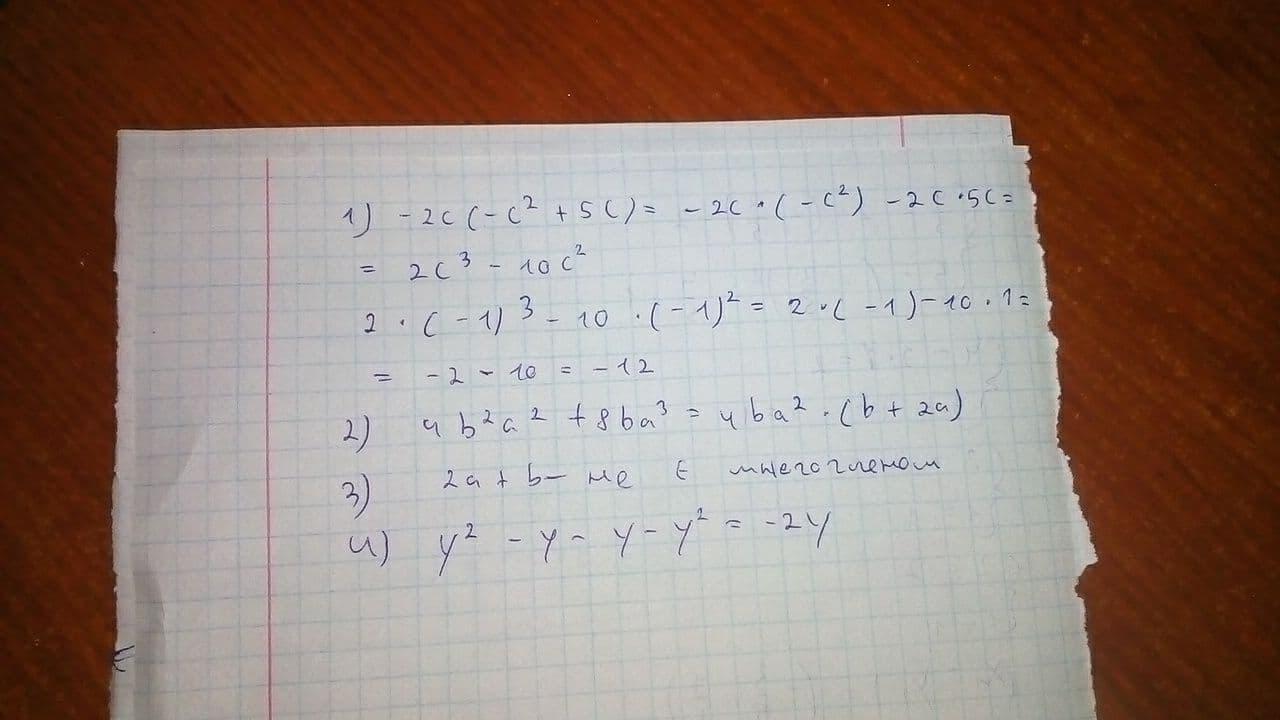 1) -2c(-c² + 5c) = -2c · (-c²) - 2c · 5c =
= 2c³ - 10c²
2 · (-1)³ - 10 · (-1)² = 2 · (-1) - 10 · 1 =
= -2 - 10 = -12
2) 4b²a² + 8ba³ = 4ba² · (b + 2a)
3) 2a + b — не є многочленом
4) y² - y - y - y² = -2y